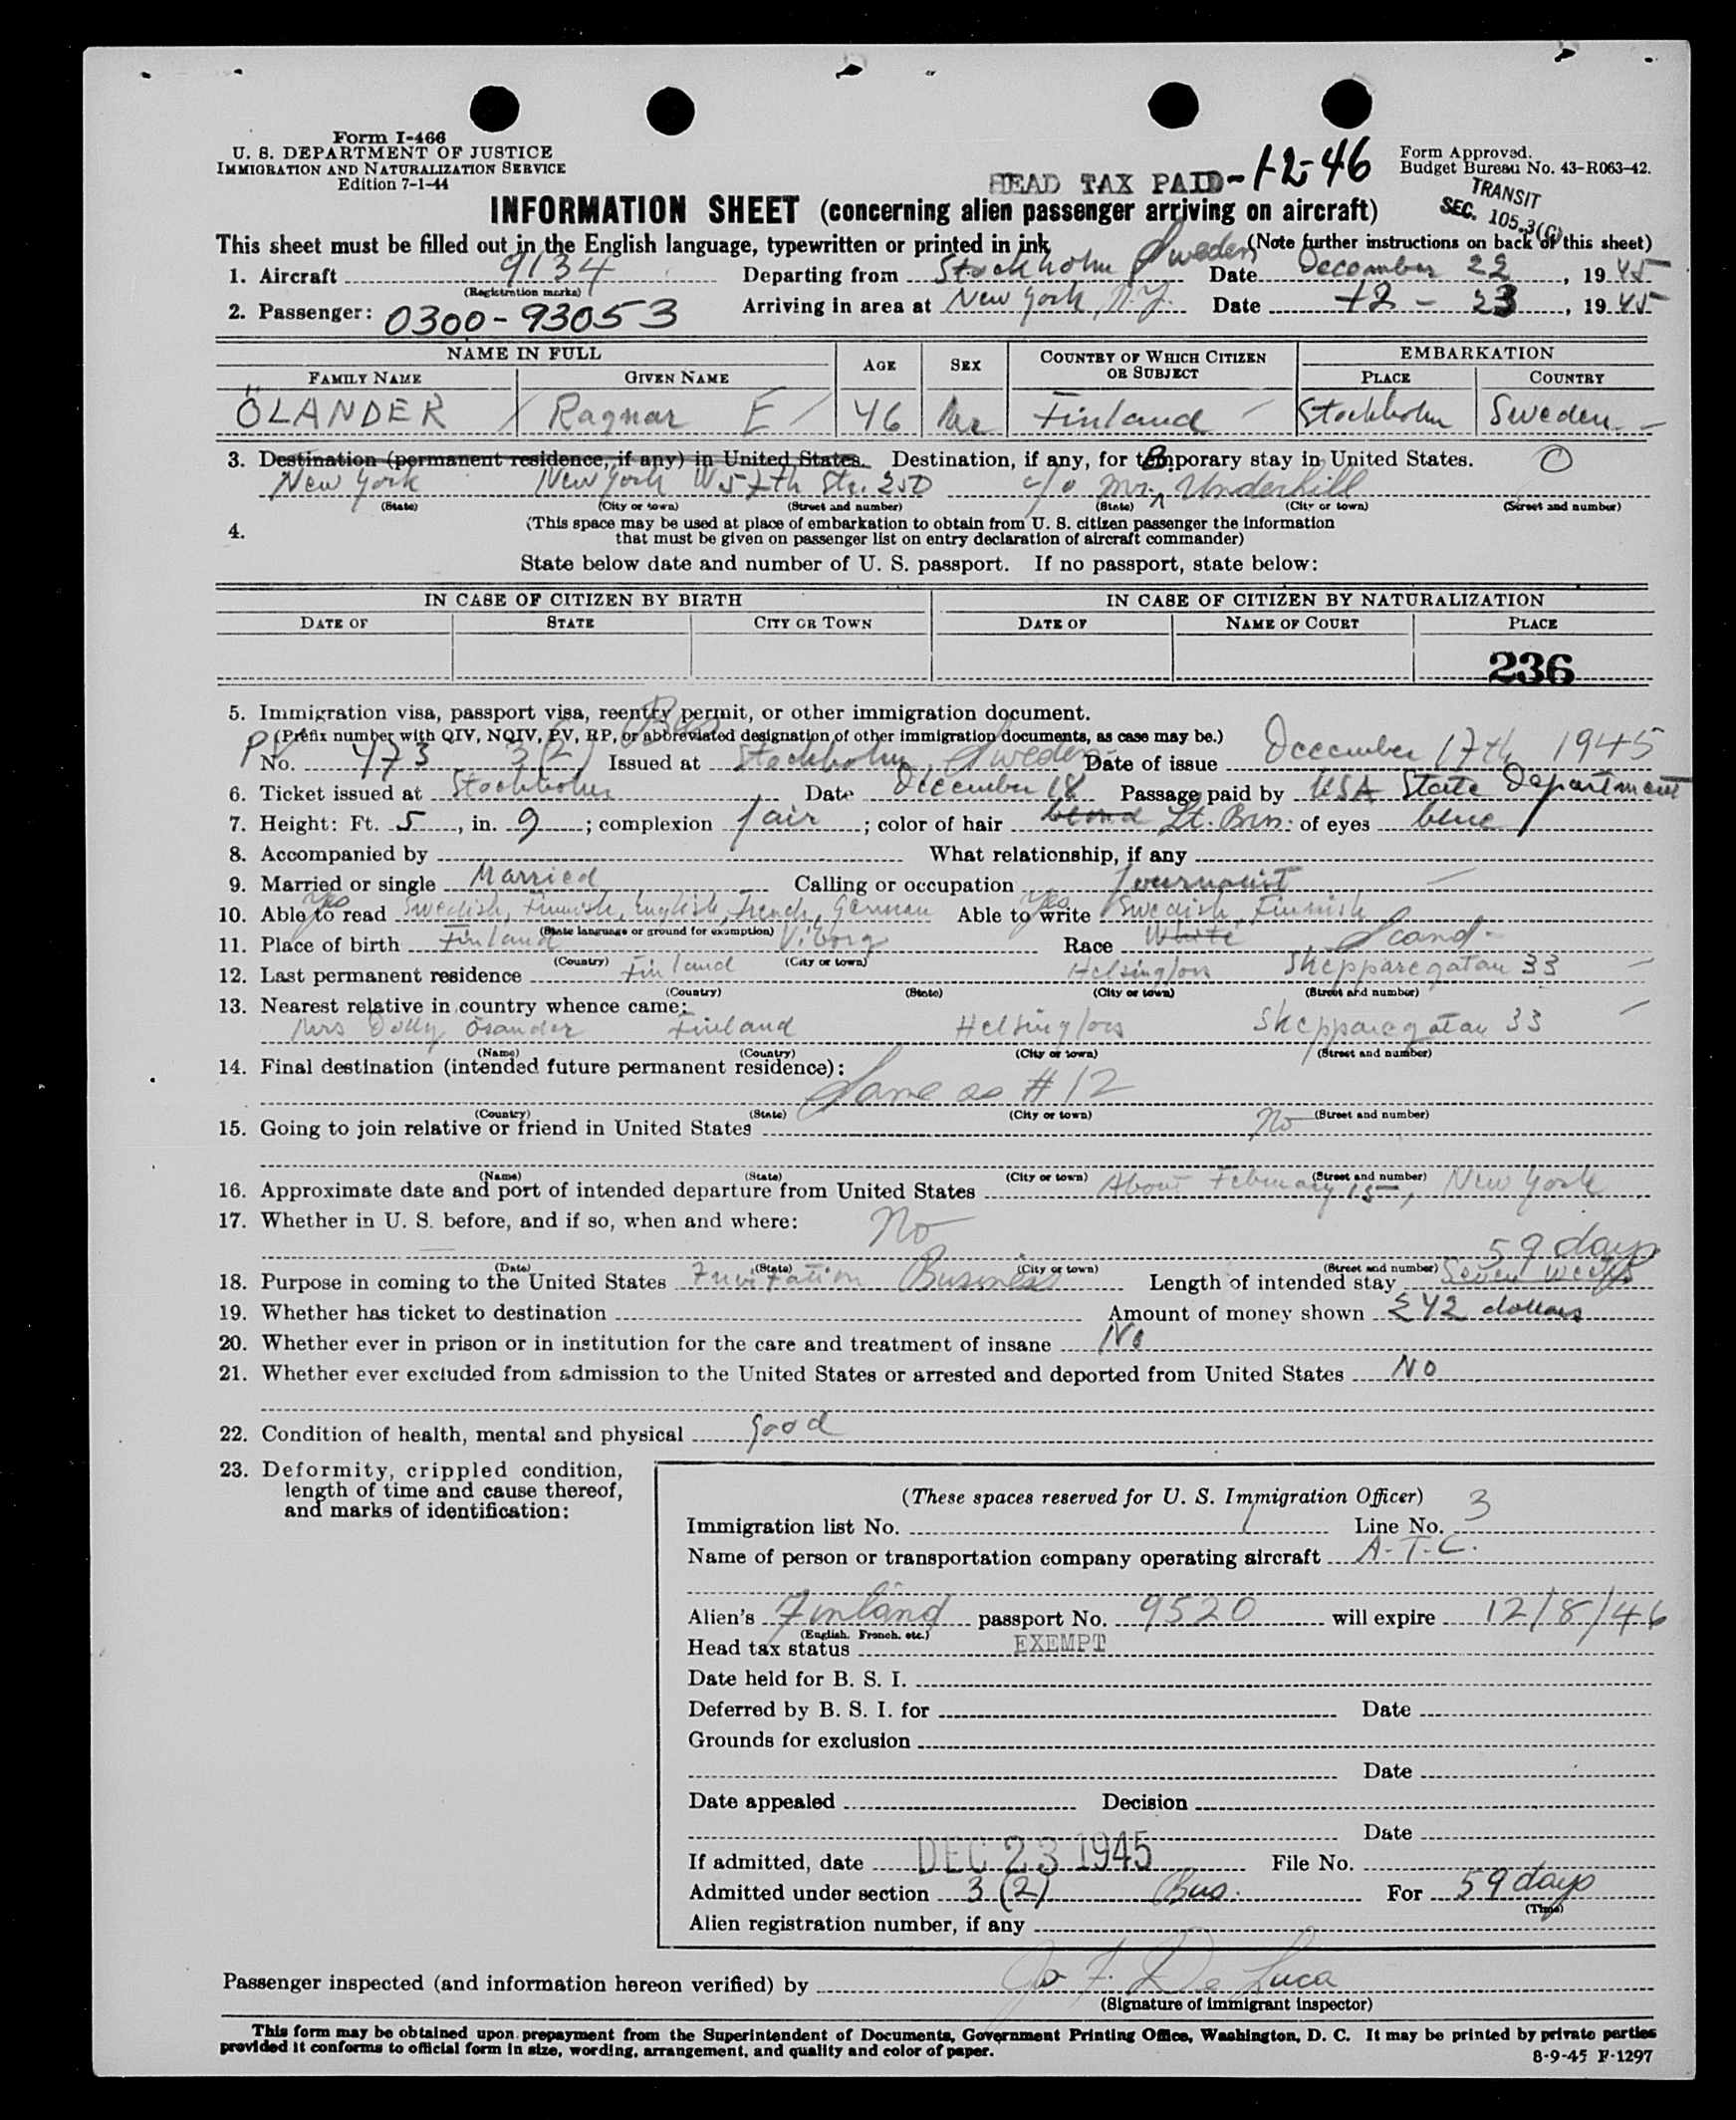 Form I-466
U. S. DEPARTMENT OF JUSTICE
IMMIGRATION AND NATURALIZATION SERVICE
Edition 7-1-44
Form Approved.
Budget Bureau No. 43-R063-42.
HEAD TAX PAID-1-2-46
TRANSIT
SEC. 105.3(C)
INFORMATION SHEET (concerning alien passenger arriving on aircraft)
This sheet must be filled out in the English language, typewritten or printed in ink (Note further instructions on back of this sheet)
1. Aircraft 9134 Departing from Stockholm Sweden Date December 22, 1945
(Registration marks)
2. Passenger: 0300-93053 Arriving in area at New York, N.Y. Date 12-23, 1945
NAME IN FULL AGE SEX COUNTRY OF WHICH CITIZEN OR SUBJECT EMBARKATION
FAMILY NAME GIVEN NAME PLACE COUNTRY
ÖLANDER Ragnar E 46 Finland Stockholm Sweden
3. Destination (permanent residence, if any) in United States. Destination, if any, for temporary stay in United States.
New York New York W 57th Str. 250 c/o Mr. Underhill
(State) (City or town) (Street and number) (State) (City or town) (Street and number)
4. (This space may be used at place of embarkation to obtain from U. S. citizen passenger the information
that must be given on passenger list on entry declaration of aircraft commander)
State below date and number of U. S. passport. If no passport, state below:
IN CASE OF CITIZEN BY BIRTH IN CASE OF CITIZEN BY NATURALIZATION
DATE OF STATE CITY OR TOWN DATE OF NAME OF COURT PLACE
236
5. Immigration visa, passport visa, reentry permit, or other immigration document.
(Prefix number with QIV, NQIV, PV, RP, or abbreviated designation of other immigration documents, as case may be.)
PV No. 473 3(2) Bus Issued at Stockholm, Sweden Date of issue December 17th 1945
6. Ticket issued at Stockholm Date December 18 Passage paid by USA State Department
7. Height: Ft. 5, in. 9; complexion fair; color of hair blond Lt. Brn. of eyes blue
8. Accompanied by What relationship, if any
9. Married or single Married Calling or occupation Journalist
10. Able to read Yes Swedish, Finnish, English, French, German Able to write Yes Swedish, Finnish
(State language or ground for exemption)
11. Place of birth Finland Viborg Race White Scand.
(Country) (City or town)
12. Last permanent residence Finland Helsingfors Skepparegatan 33
(Country) (State) (City or town) (Street and number)
13. Nearest relative in country whence came:
Mrs Dolly Ölander Finland Helsingfors Skepparegatan 33
(Name) (Country) (City or town) (Street and number)
14. Final destination (intended future permanent residence):
Same as #12
(Country) (State) (City or town) (Street and number)
15. Going to join relative or friend in United States No
(Name) (State) (City or town) (Street and number)
16. Approximate date and port of intended departure from United States About February 15, New York
17. Whether in U. S. before, and if so, when and where: No
(Date) (State) (City or town) (Street and number)
59 days
18. Purpose in coming to the United States Invitation Business Length of intended stay Seven weeks
19. Whether has ticket to destination Amount of money shown 242 dollars
20. Whether ever in prison or in institution for the care and treatment of insane No
21. Whether ever excluded from admission to the United States or arrested and deported from United States No
22. Condition of health, mental and physical good
23. Deformity, crippled condition,
length of time and cause thereof,
and marks of identification:
(These spaces reserved for U. S. Immigration Officer)
Immigration list No. 1 Line No. 3
Name of person or transportation company operating aircraft A.T.C.
Alien's Finland passport No. 9520 will expire 12/8/46
(English, French, etc.)
Head tax status EXEMPT
Date held for B. S. I.
Deferred by B. S. I. for Date
Grounds for exclusion
Date
Date appealed Decision
Date
If admitted, date DEC 23 1945 File No.
Admitted under section 3(2) Bus. For 59 days
(Time)
Alien registration number, if any
Passenger inspected (and information hereon verified) by Jo F. De Luca
(Signature of immigrant inspector)
This form may be obtained upon prepayment from the Superintendent of Documents, Government Printing Office, Washington, D. C. It may be printed by private parties
provided it conforms to official form in size, wording, arrangement, and quality and color of paper.
8-9-45 F-1297